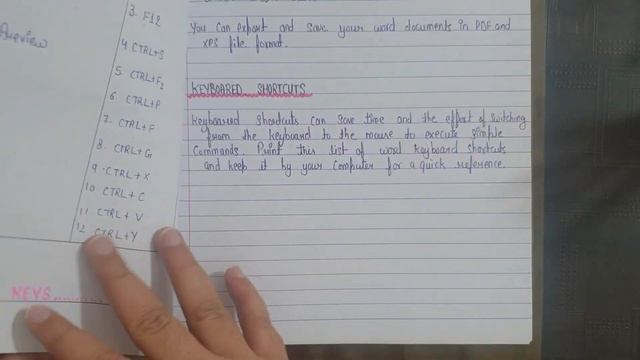 Preview
3. F12
4 CTRL+S
5. CTRL+F2
6 CTRL+P
7. CTRL+F
8. CTRL+G
9. CTRL+X
10 CTRL+C
11 CTRL+V
12 CTRL+Y
KEYS..........
You can export and save your word documents in PDF and
XPS file format.
KEYBOARED SHORTCUTS
Keyboared shortcuts can save time and the effort of switching
from the keyboard to the mouse to execute simple
Commands. Print this list of word keyboard shortcuts
and keep it by your Computer for a quick reference.